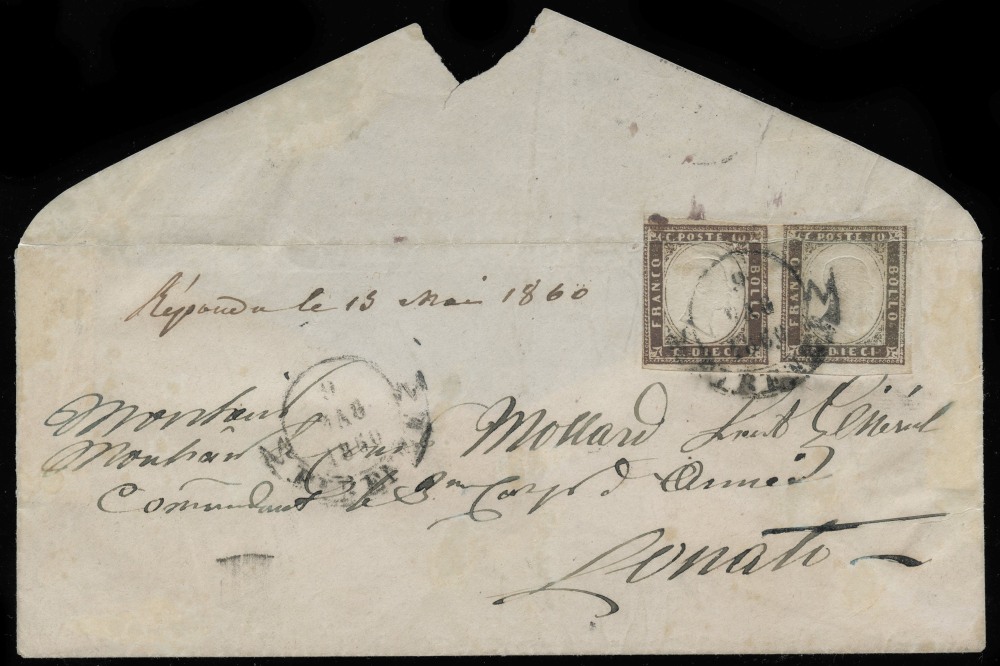 C. POSTE 10
FRANCO
BOLLO
C. DIECI
C. POSTE 10
FRANCO
BOLLO
C. DIECI
Répondu le 13 Mai 1860
9
1860
Monsieur
Monsieur Mollard Lieut Général
Commandant le 3me Corps d'Armée
Lonato